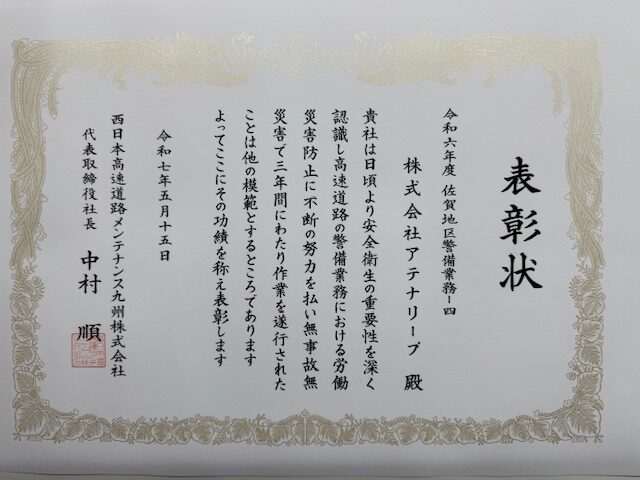 表彰状
令和六年度 佐賀地区警備業務ー四
株式会社アテナリーブ 殿
貴社は日頃より安全衛生の重要性を深く
認識し高速道路の警備業務における労働
災害防止に不断の努力を払い無事故無
災害で三年間にわたり作業を遂行された
ことは他の模範とするところであります
よってここにその功績を称え表彰します
令和七年五月十五日
西日本高速道路メンテナンス九州株式会社
代表取締役社長 中村 順